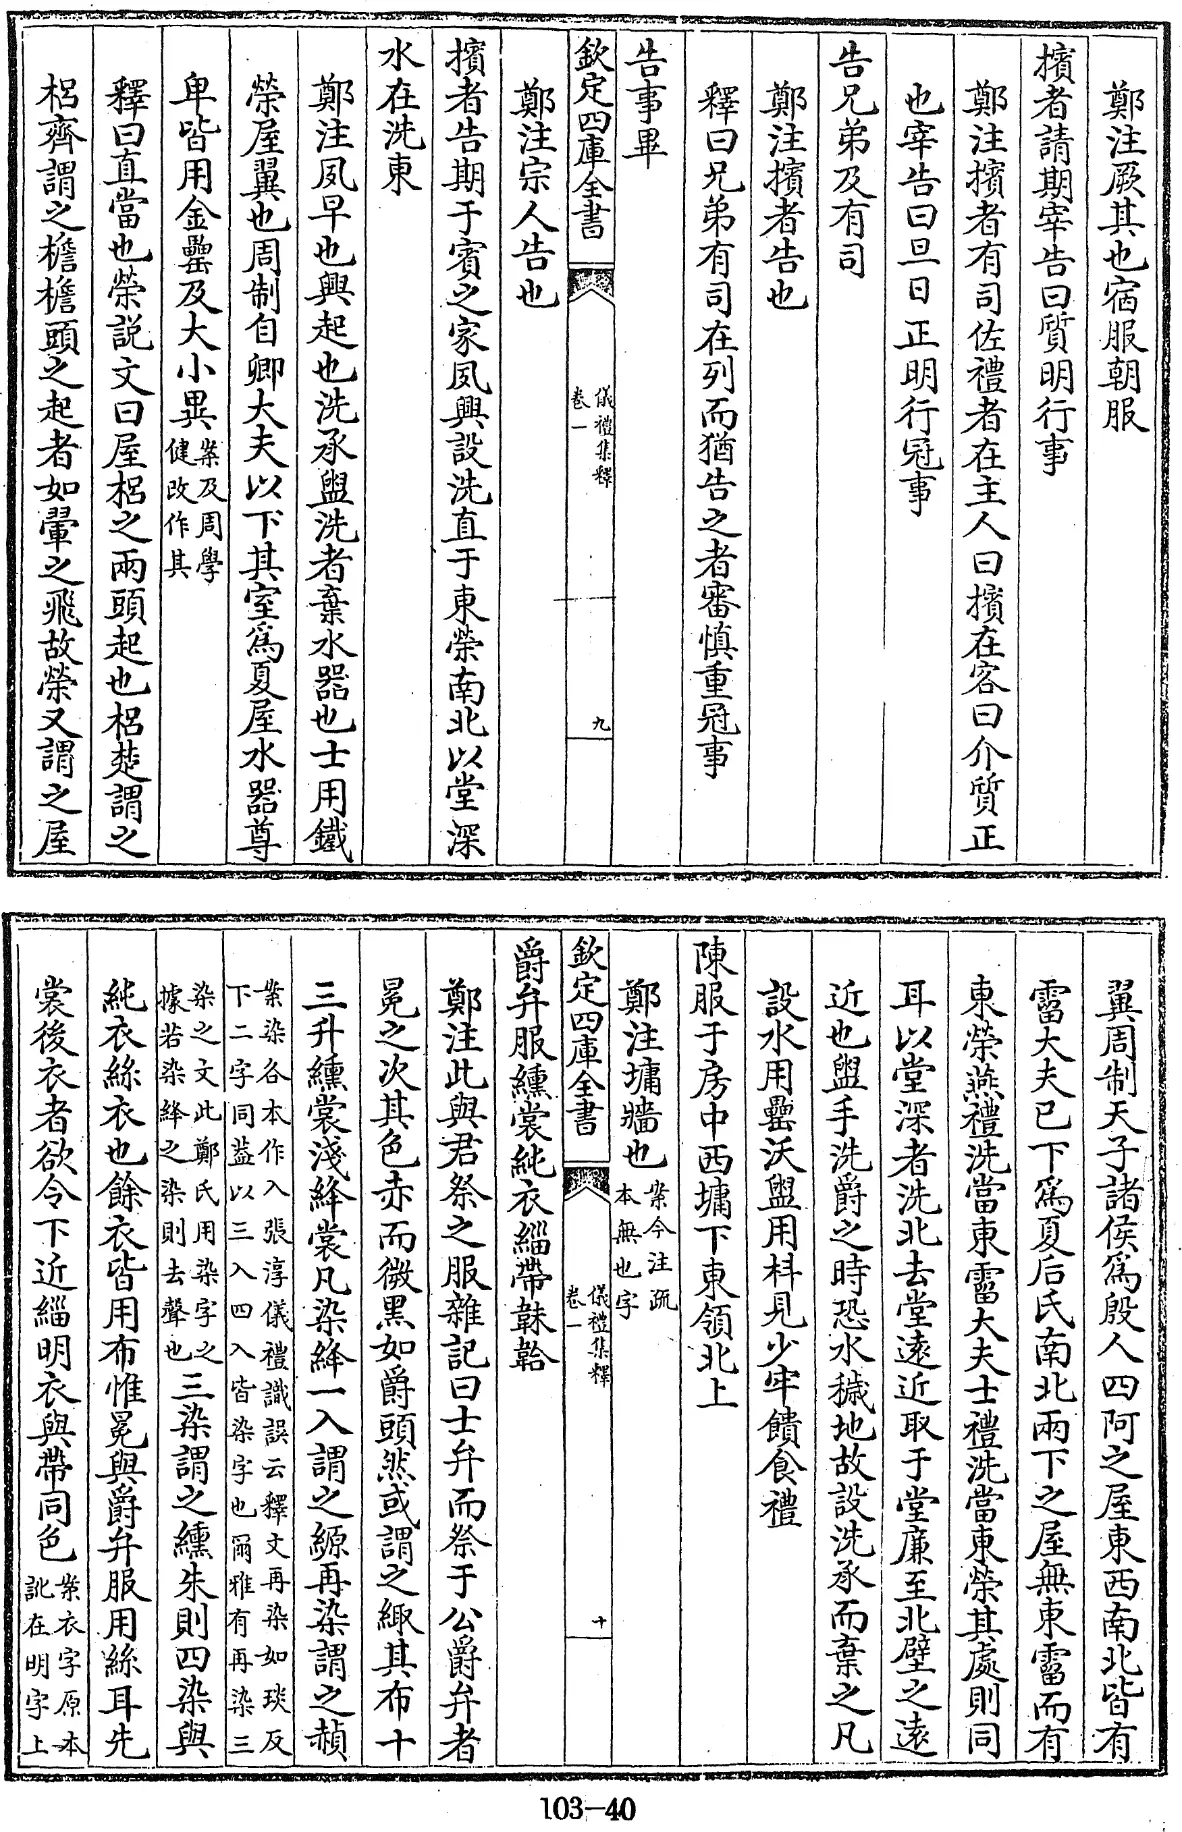 鄭注厥其也宿服朝服
擯者請期宰告曰質明行事
鄭注擯者有司佐禮者在主人曰擯在客曰介質正
也宰告曰旦日正明行冠事
告兄弟及有司
鄭注擯者告也
釋曰兄弟有司在列而猶告之者審慎重冠事
告事畢
欽定四庫全書
儀禮集釋
卷一
九
鄭注宗人告也
擯者告期于賓之家夙興設洗直于東榮南北以堂深
水在洗東
鄭注夙早也興起也洗承盥洗者棄水器也士用鐵
榮屋翼也周制自卿大夫以下其室爲夏屋水器尊
卑皆用金罍及大小異案及周學
健改作其
釋曰直當也榮説文曰屋梠之兩頭起也梠楚謂之
梠齊謂之檐檐頭之起者如翬之飛故榮又謂之屋
翼周制天子諸侯爲殷人四阿之屋東西南北皆有
霤大夫已下爲夏后氏南北兩下之屋無東霤而有
東榮燕禮洗當東霤大夫士禮洗當東榮其處則同
耳以堂深者洗北去堂遠近取于堂廉至北壁之遠
近也盥手洗爵之時恐水穢地故設洗承而棄之凡
設水用罍沃盥用枓見少牢饋食禮
陳服于房中西墉下東領北上
鄭注墉牆也案今注疏
本無也字
欽定四庫全書
儀禮集釋
卷一
十
爵弁服纁裳純衣緇帶韎韐
鄭注此與君祭之服雜記曰士弁而祭于公爵弁者
冕之次其色赤而微黑如爵頭然或謂之緅其布十
三升纁裳淺絳裳凡染絳一入謂之縓再染謂之赬
案染各本作入張淳儀禮識誤云釋文再染如琰反
下二字同葢以三入四入皆染字也爾雅有再染三
染之文此鄭氏用染字之
據若染絳之染則去聲也三染謂之纁朱則四染與
純衣絲衣也餘衣皆用布惟冕與爵弁服用絲耳先
裳後衣者欲令下近緇明衣與帶同色案衣字原本
訛在明字上
103-40